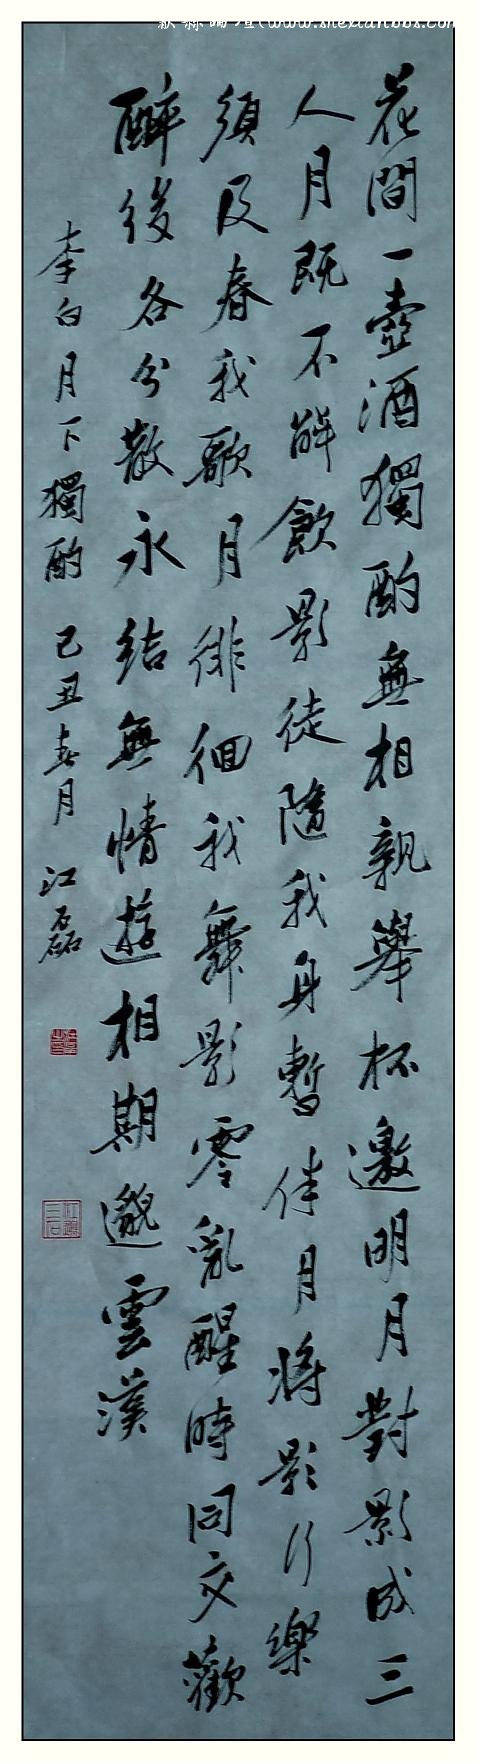 花間一壺酒獨酌無相親舉杯邀明月對影成三
人月既不解飲影徒隨我身暫伴月將影行樂
須及春我歌月徘徊我舞影零亂醒時同交歡
醉後各分散永結無情遊相期邈雲漢
李白月下獨酌 己丑春月 江磊